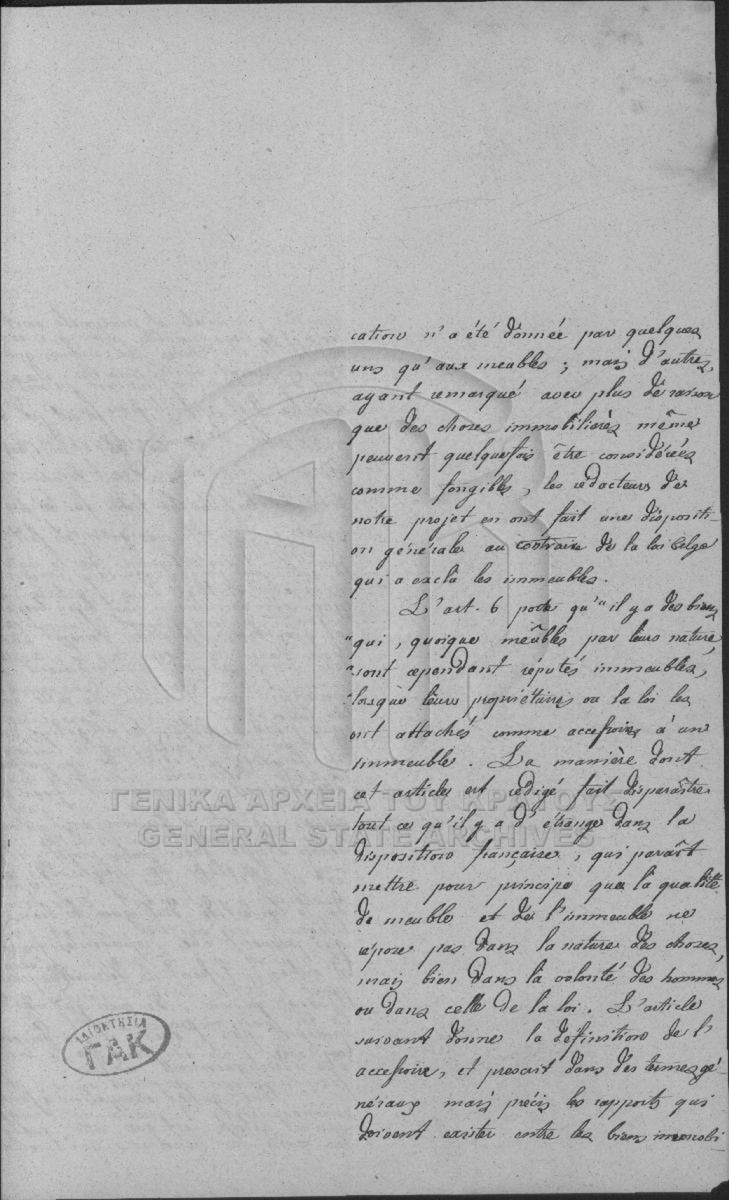 cation n'a été donnée par quelques
uns qu'aux meubles ; mais d'autres,
ayant remarqué avec plus de raison
que des choses immobilières même
peuvent quelquefois être considérées
comme fongibles, les rédacteurs de
notre projet en ont fait une dispositi-
on générale au contraire de la loi belge
qui a exclu les immeubles.
L'art. 6 porte qu'"il y a des biens
"qui, quoique meubles par leurs nature,
"sont cependant réputés immeubles,
"lorsque leurs propriétaires ou la loi les
ont attachés comme accessoires à un
immeuble. La manière dont
cet article est rédigé fait disparaître
tout ce qu'il y a d'étrange dans la
disposition française, qui paraît
mettre pour principe que la qualité
de meuble et de l'immeuble ne
repose pas dans la nature des choses,
mais bien dans la volonté des hommes
ou dans celle de la loi. L'article
suivant donne la définition de l'
accessoire, et prescrit dans des termes gé-
néraux mais précis les rapports qui
doivent exister entre les biens immobi-
ΓΕΝΙΚΑ ΑΡΧΕΙΑ ΤΟΥ ΚΡΑΤΟΥΣ
GENERAL STATE ARCHIVES
ΙΔΙΟΚΤΗΣΙΑ
ΓΑΚ